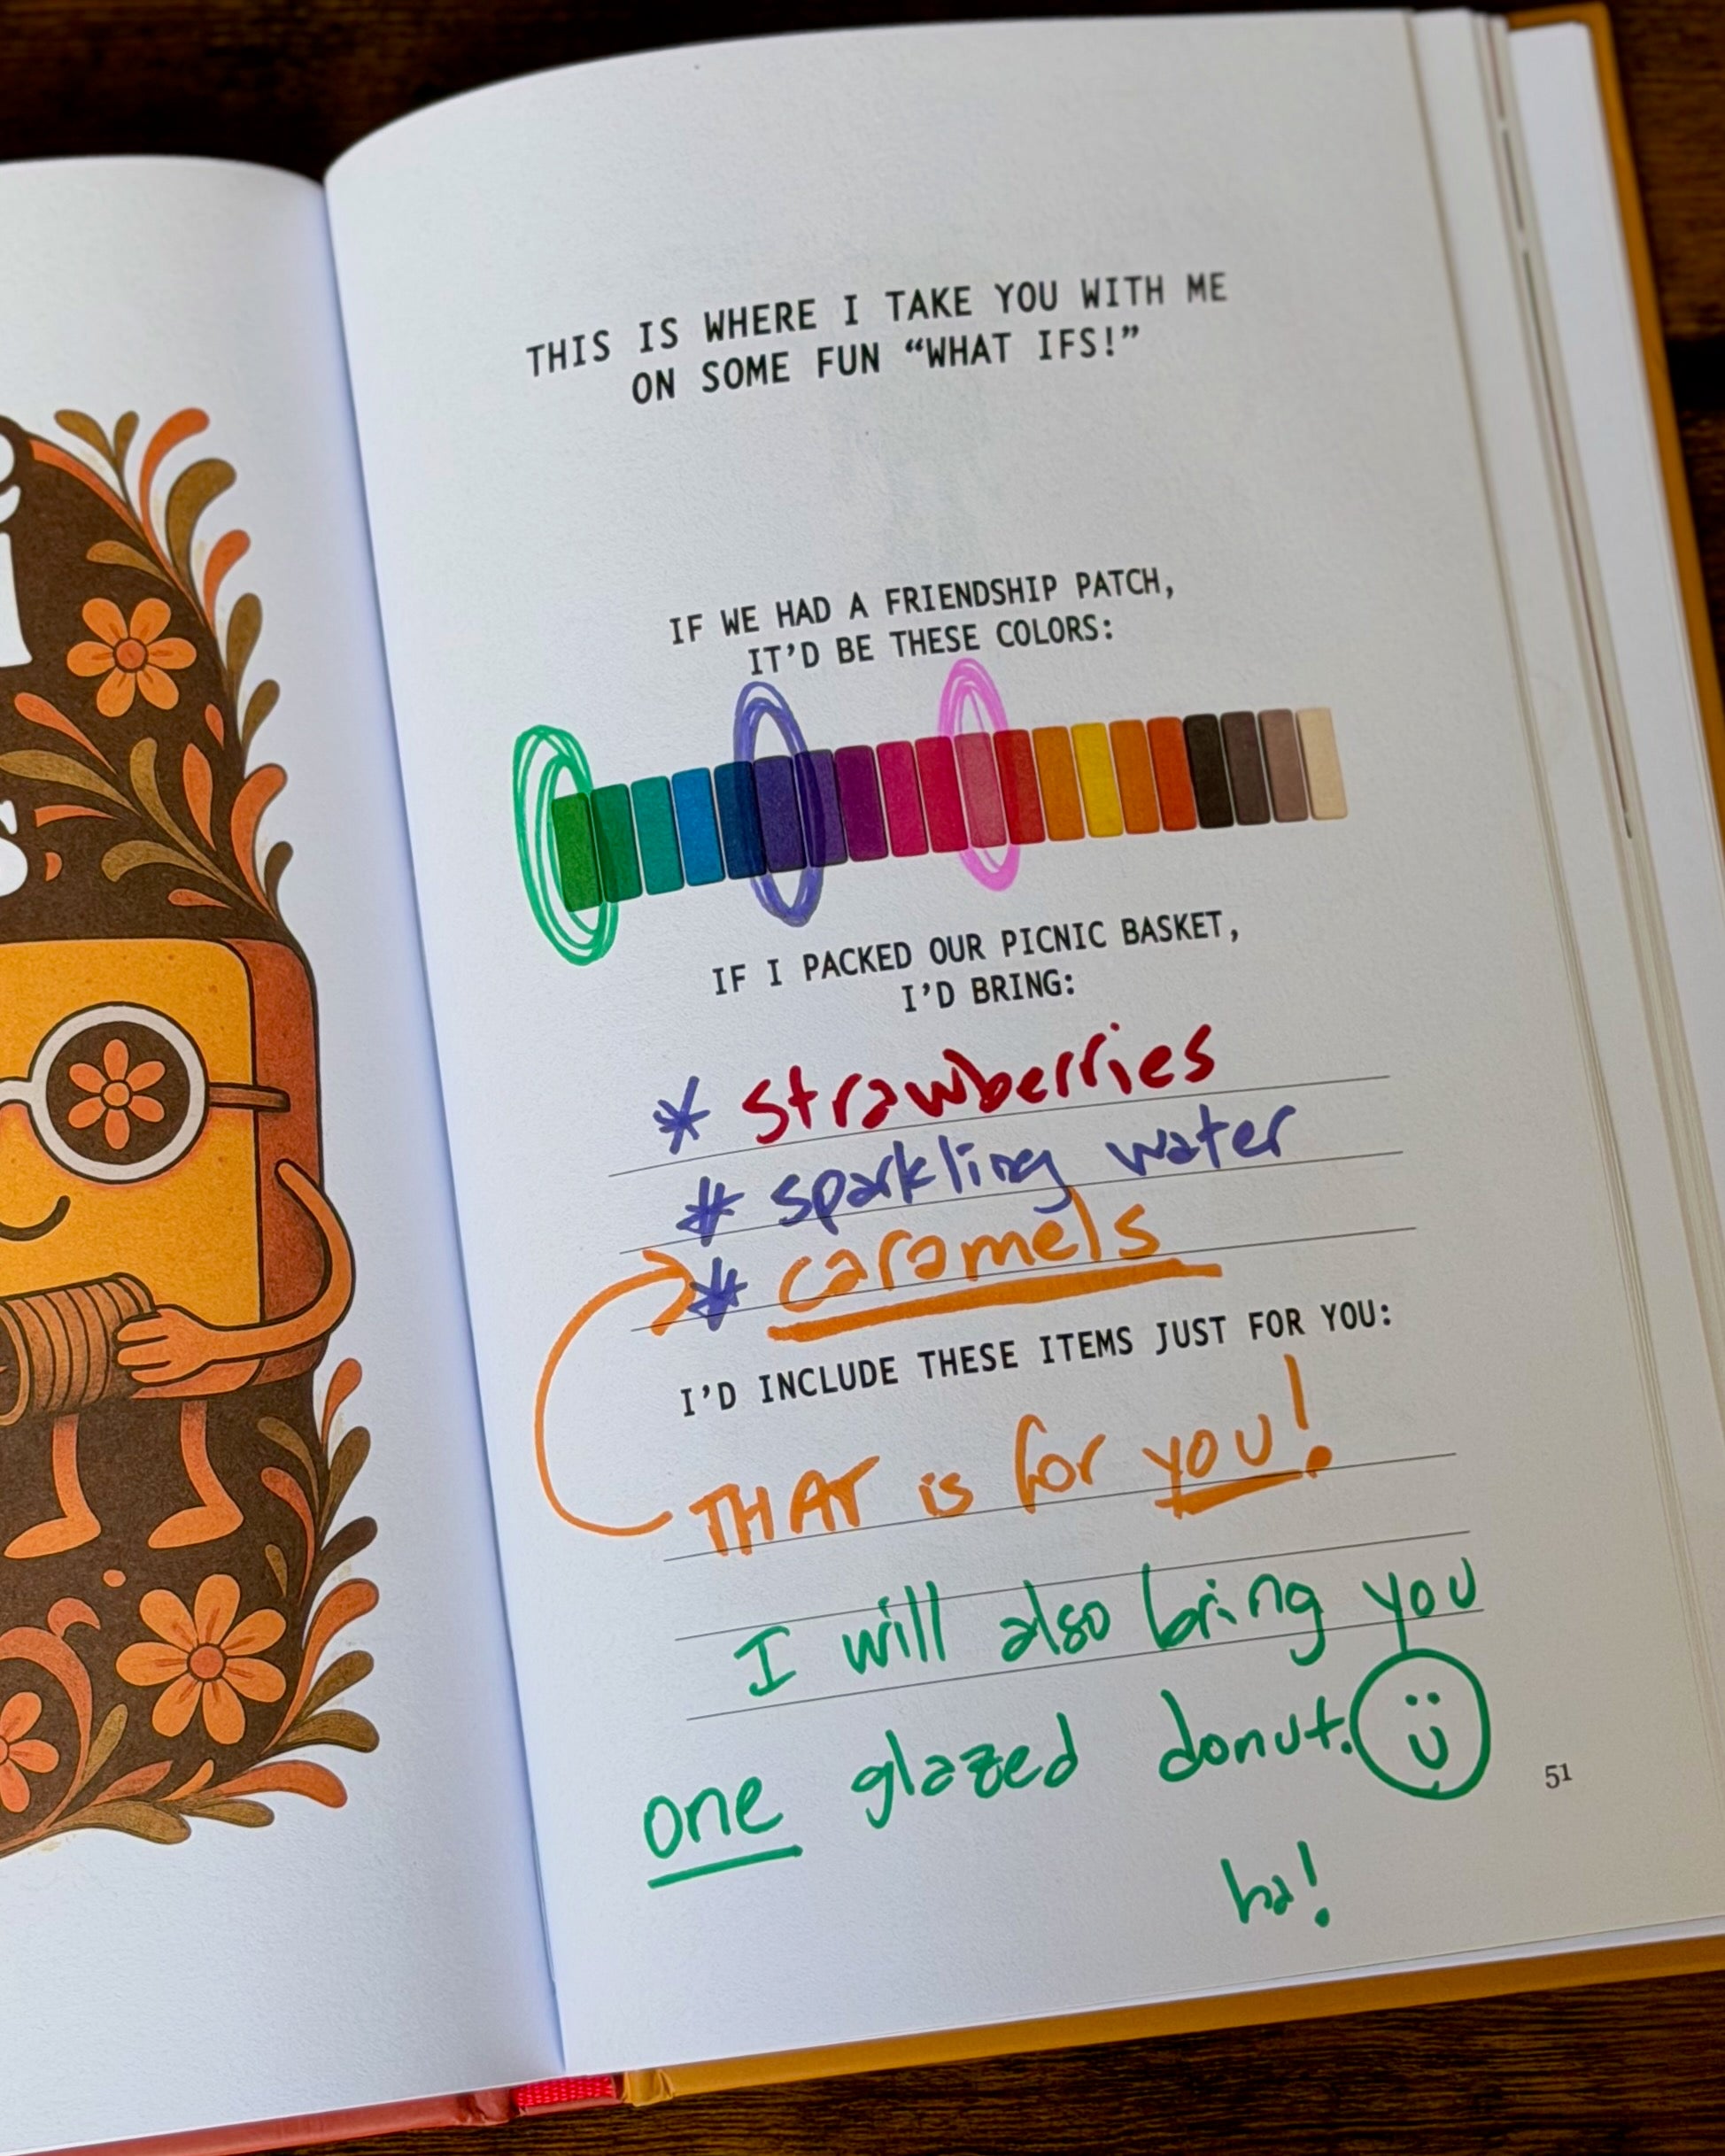 THIS IS WHERE I TAKE YOU WITH ME
ON SOME FUN “WHAT IFS!”
IF WE HAD A FRIENDSHIP PATCH,
IT’D BE THESE COLORS:
IF I PACKED OUR PICNIC BASKET,
I’D BRING:
* strawberries
* sparkling water
* caramels
I’D INCLUDE THESE ITEMS JUST FOR YOU:
THAT is for you!
I will also bring you
one glazed donut.
ha!
51